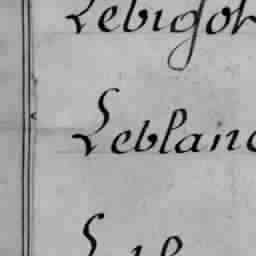 Lebigot
Leblanc